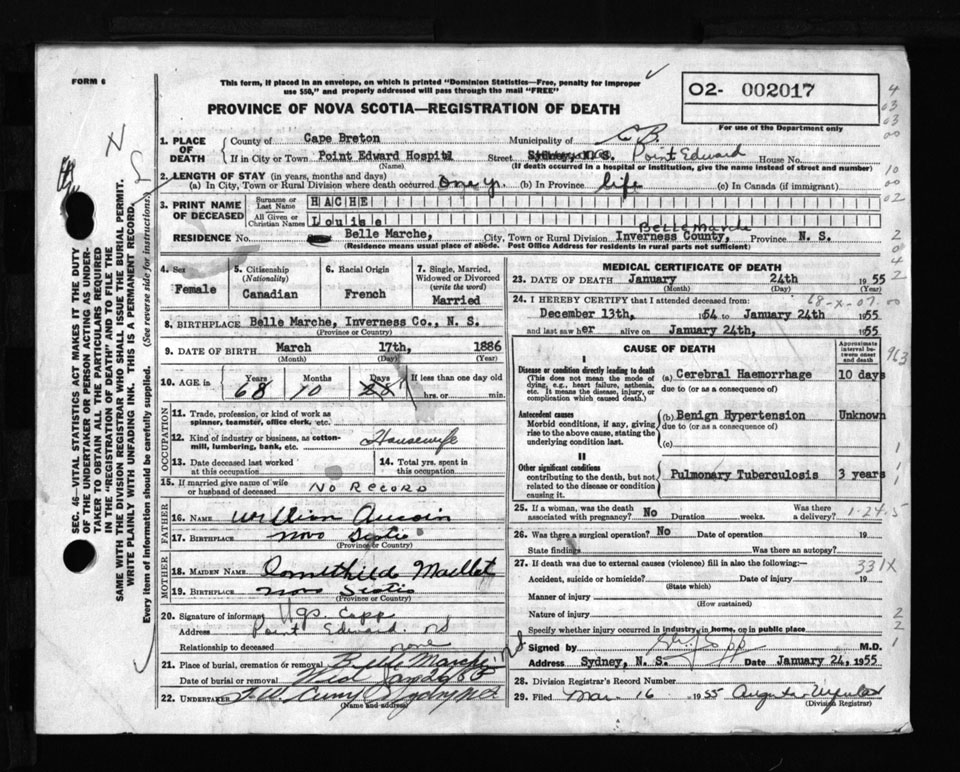 FORM 6
This form, if placed in an envelope, on which is printed "Dominion Statistics—Free, penalty for improper
use $50," and properly addressed will pass through the mail "FREE"
PROVINCE OF NOVA SCOTIA—REGISTRATION OF DEATH
O2- 002017
For use of the Department only
SEC. 46—VITAL STATISTICS ACT MAKES IT THE DUTY
OF THE UNDERTAKER OR PERSON ACTING AS UNDER-
TAKER TO OBTAIN ALL THE PARTICULARS REQUIRED
IN THE "REGISTRATION OF DEATH" AND TO FILE THE
SAME WITH THE DIVISION REGISTRAR WHO SHALL ISSUE THE BURIAL PERMIT.
WRITE PLAINLY WITH UNFADING INK. THIS IS A PERMANENT RECORD.
Every item of information should be carefully supplied. (See reverse side for instructions)
1. PLACE OF DEATH County of Cape Breton Municipality of C.B.
If in City or Town Point Edward Hospital Street Sydney, N. S. Point Edward House No.
(Name) (If death occurred in a hospital or institution, give the name instead of street and number)
2. LENGTH OF STAY (in years, months and days)
(a) In City, Town or Rural Division where death occurred one yr. (b) In Province life (c) In Canada (if immigrant)
3. PRINT NAME OF DECEASED Surname or Last Name HACHE
All Given or Christian Names Louise
Belle Marche
RESIDENCE No. Belle Marche, City, Town or Rural Division Inverness County, Province N. S.
(Residence means usual place of abode. Post Office Address for residents in rural parts not sufficient)
4. Sex Female
5. Citizenship (Nationality) Canadian
6. Racial Origin French
7. Single, Married, Widowed or Divorced (write the word) Married
8. BIRTHPLACE Belle Marche, Inverness Co., N. S.
(Province or Country)
9. DATE OF BIRTH March 17th, 1886
(Month) (Day) (Year)
10. AGE in Years Months Days If less than one day old
68 10 hrs. or min.
OCCUPATION
11. Trade, profession, or kind of work as
spinner, teamster, office clerk, etc.
12. Kind of industry or business, as cotton-
mill, lumbering, bank, etc. Housewife
13. Date deceased last worked at this occupation
14. Total yrs. spent in this occupation
15. If married give name of wife
or husband of deceased No Record
FATHER
16. NAME William Aucoin
17. BIRTHPLACE Nova Scotia
(Province or Country)
MOTHER
18. MAIDEN NAME Maillet
19. BIRTHPLACE Nova Scotia
(Province or Country)
20. Signature of informant
Address Point Edward. NS
Relationship to deceased none
21. Place of burial, cremation or removal Belle Marche
Date of burial or removal Wed Jan 26 55
22. UNDERTAKER Sydney N.S.
(Name and address)
MEDICAL CERTIFICATE OF DEATH
23. DATE OF DEATH January 24th 1955
(Month) (Day) (Year)
24. I HEREBY CERTIFY that I attended deceased from: 68-X-07.00
December 13th, 1954 to January 24th 1955
and last saw her alive on January 24th, 1955
CAUSE OF DEATH
Approximate interval between onset and death
I
Disease or condition directly leading to death
(This does not mean the mode of dying, e.g., heart failure, asthenia, etc. It means the disease, injury, or complication which caused death.)
(a) Cerebral Haemorrhage 10 days
due to (or as a consequence of)
Antecedent causes
Morbid conditions, if any, giving rise to the above cause, stating the underlying condition last.
(b) Benign Hypertension Unknown
due to (or as a consequence of)
(c)
II
Other significant conditions
contributing to the death, but not related to the disease or condition causing it.
Pulmonary Tuberculosis 3 years
25. If a woman, was the death associated with pregnancy? No Duration weeks. Was there a delivery? 1-24-5
26. Was there a surgical operation? No Date of operation 19
State findings Was there an autopsy?
27. If death was due to external causes (violence) fill in also the following:— 331X
Accident, suicide or homicide? Date of injury 19
(State which)
Manner of injury
(How sustained)
Nature of injury
Specify whether injury occurred in industry, in home, or in public place
Signed by M.D.
Address Sydney, N. S. Date January 24, 1955
28. Division Registrar's Record Number
29. Filed Mar. 16 1955
(Division Registrar)